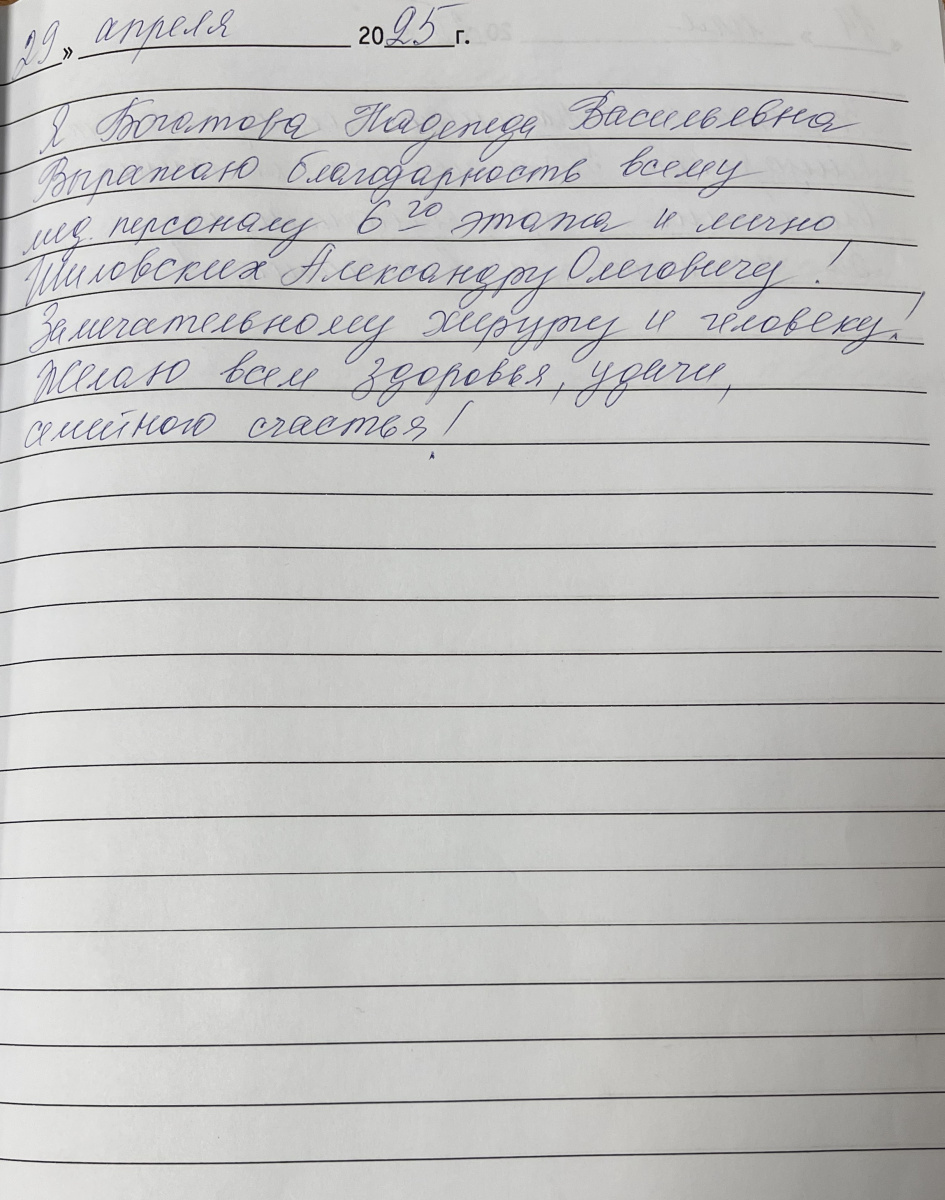 29» апреля 2025 г.
Я Богатова Надежда Васильевна
Выражаю благодарность всему
мед. персоналу 6го этажа и лично
Шиловских Александру Олеговичу!
Замечательному хирургу и человеку!
Желаю всем здоровья, удачи,
семейного счастья!